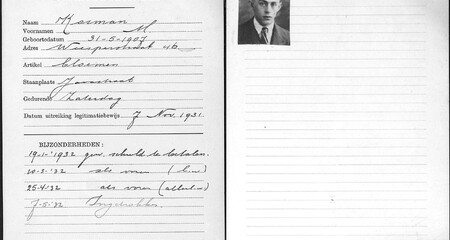 Naam Kosman
Voornamen M
Geboortedatum 31-5-1907
Adres Weesperstraat 46
Artikel bloemen
Staanplaats Javastraat
Gedurende Zaterdag
Datum uitreiking legitimatiebewijs 7 Nov. 1931
BIJZONDERHEDEN:
19-1-'1932 gew. schuld te betalen.
10-3-'32 als voren
25-4-'32 als voren
7-5-'32 Ingetrokken.